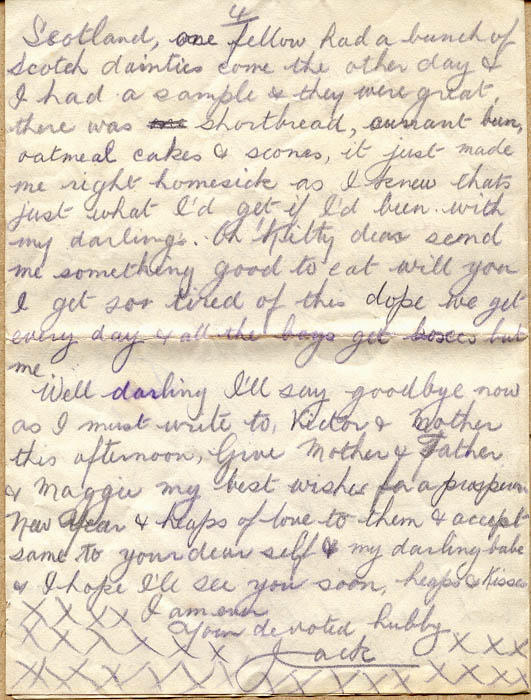 4
Scotland, one fellow had a bunch of
Scotch dainties come the other day &
I had a sample & they were great,
there was shortbread, currant bun,
oatmeal cakes & scones, it just made
me right homesick as I knew thats
just what I'd get if I'd been with
my darlings. Oh Kitty dear send
me something good to eat will you
I get so tired of this dope we get
every day & all the boys get boxes but
me.
Well darling I'll say goodbye now
as I must write to Victor & Mother
this afternoon, Give Mother & Father
& Maggie my best wishes for a prosperous
New Year & heaps of love to them & accept
same to your dear self & my darling babe
& I hope I'll see you soon, heaps & Kisses
XXXXX I am ever
XXXXX Your devoted hubby
XXXXXX Jack XXX
XXXXXXXXXXXXXXX